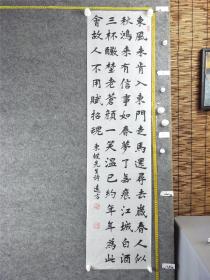 東風未肯入東門走馬還尋去歲春人似
秋鴻來有信事如春夢了無痕江城白酒
三杯釅埜老蒼顔一笑溫已約年年為此
會故人不用賦招魂 東坡先生詩